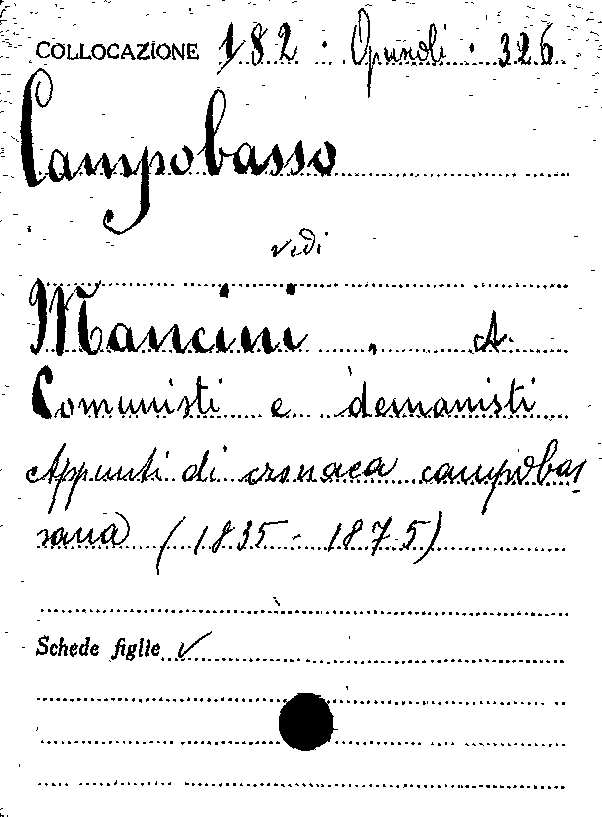 COLLOCAZIONE 182 · Opuscoli · 326
Campobasso
vedi
Mancini, A.
Comunisti e demanisti
Appunti di cronaca campobas
sana (1835 - 1875)
Schede figlie ✓